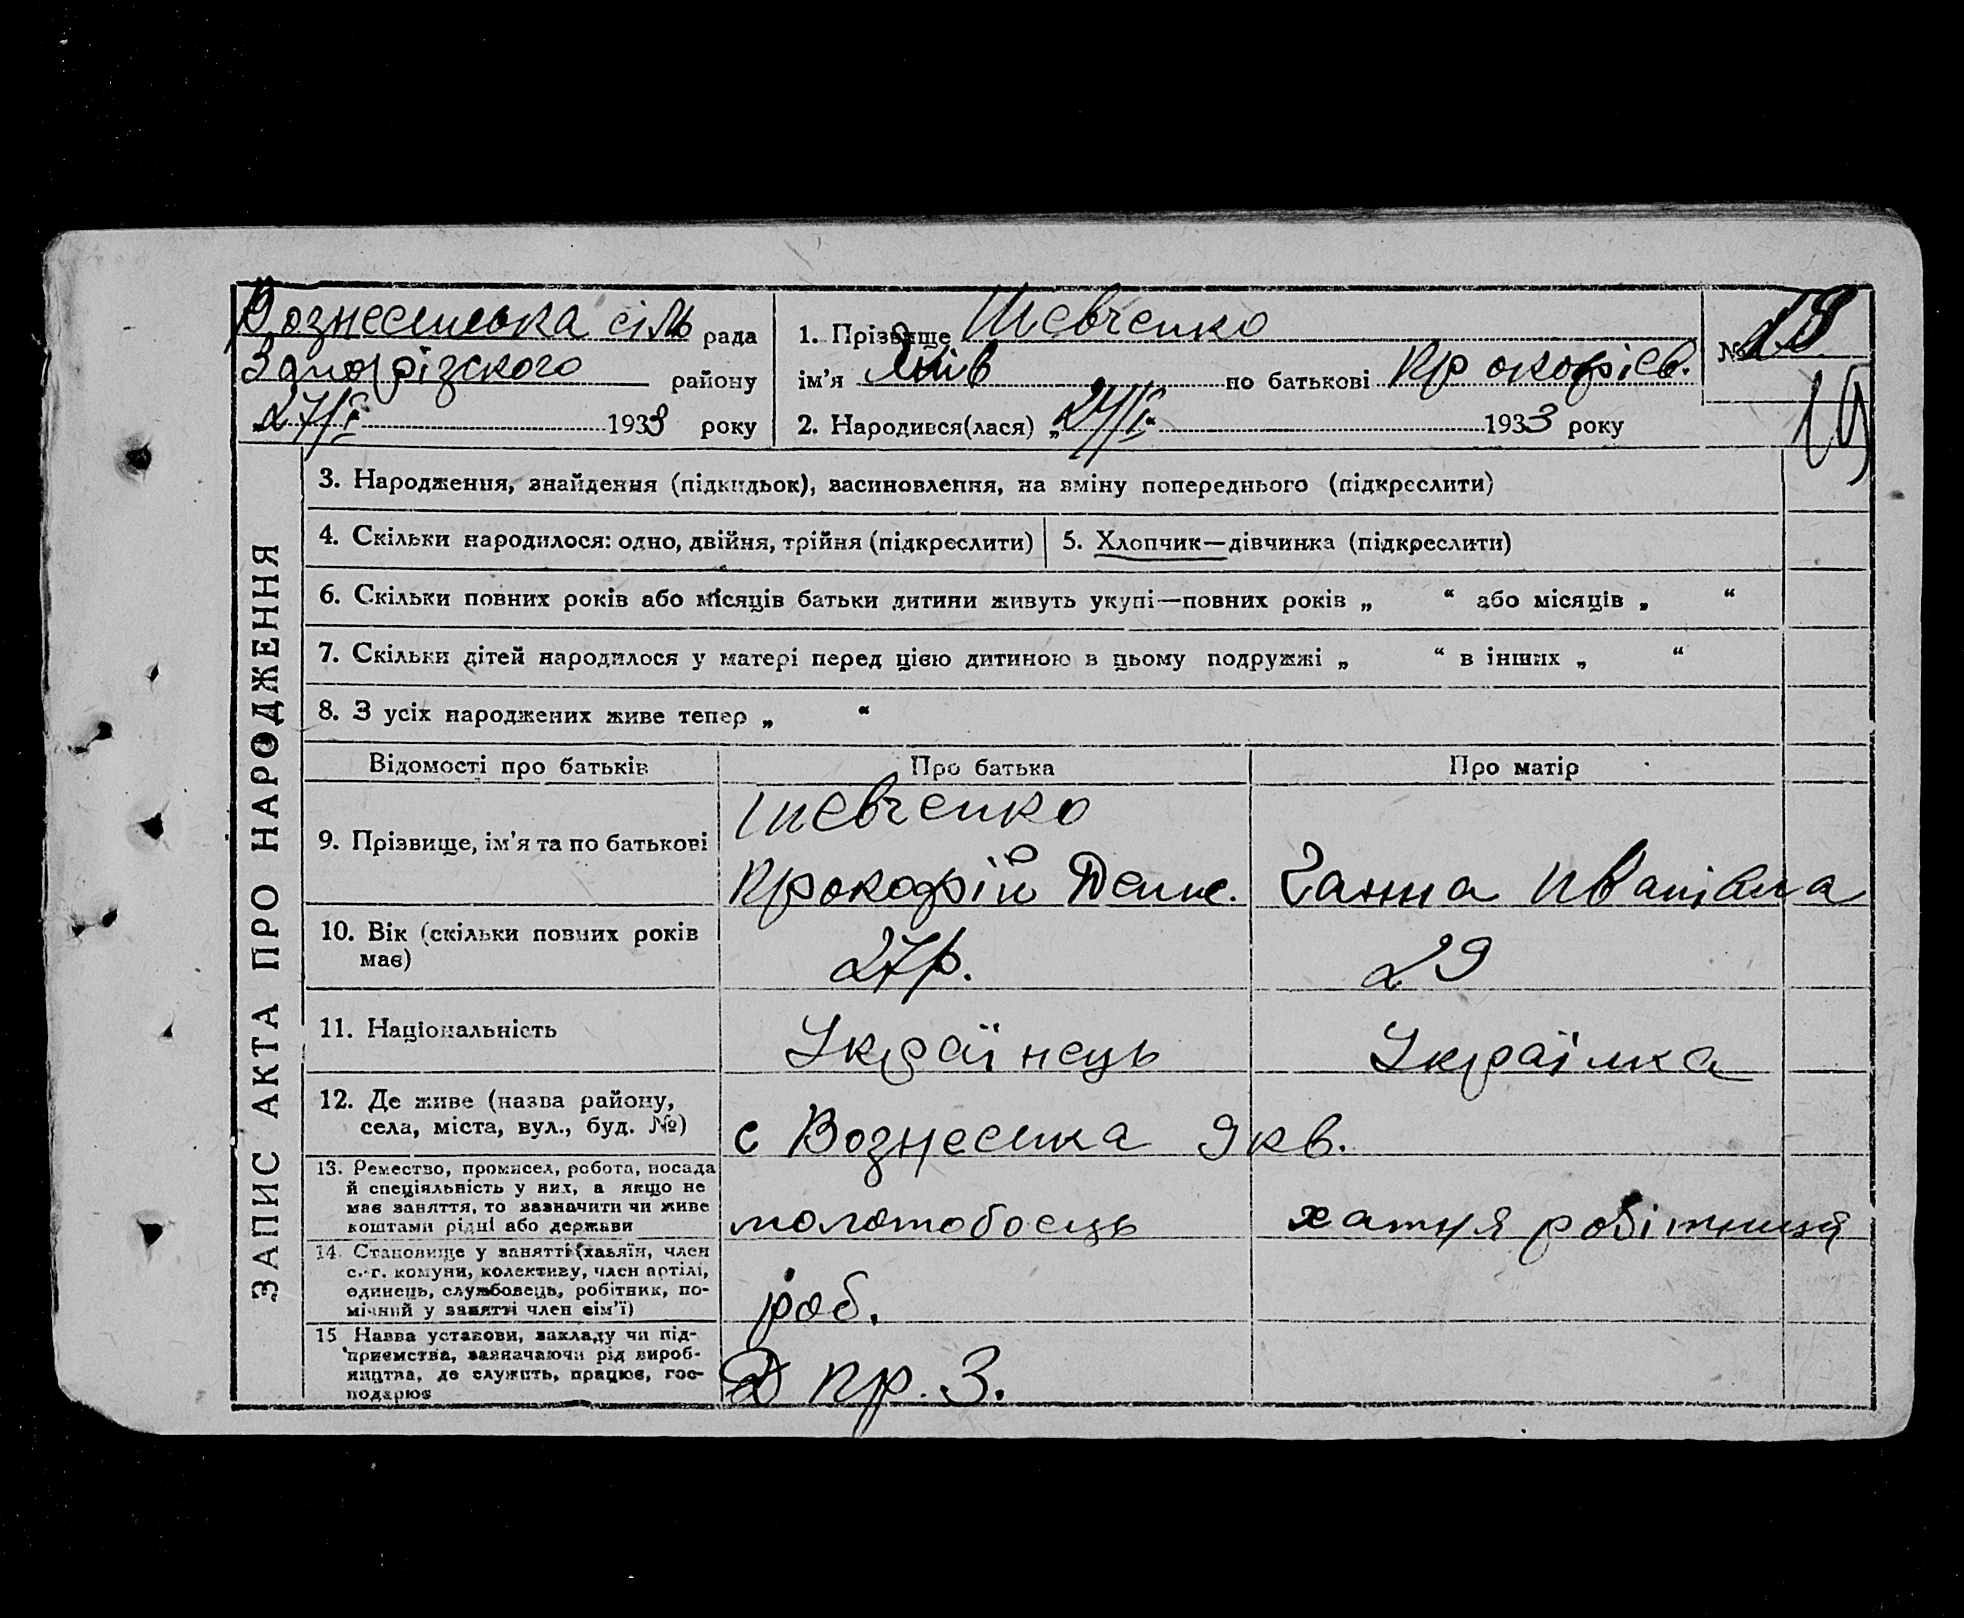 Вознесенська сіль рада
Запорізского району
27/I 1933 року
1. Прізвище Шевченко
ім'я Яків по батькові Прокофієв.
2. Народився(лася) „24/I“ 1933 року
№ 18
19
ЗАПИС АКТА ПРО НАРОДЖЕННЯ
3. Народження, знайдення (підкидьок), васиновлення, на зміну попереднього (підкреслити)
4. Скільки народилося: одно, двійня, трійня (підкреслити) 5. Хлопчик—дівчинка (підкреслити)
6. Скільки повних років або місяців батьки дитини живуть укупі—повних років „ “ або місяців „ “
7. Скільки дітей народилося у матері перед цією дитиною в цьому подружжі „ “ в інших „ “
8. З усіх народжених живе тепер „ “
Відомості про батьків Про батька Про матір
9. Прізвище, ім'я та по батькові
Шевченко
Прокофій Ганна Іванівна
10. Вік (скільки повних років
має)
27 р. 29
11. Національність
Українець Українка
12. Де живе (назва району,
села, міста, вул., буд. №)
с Вознесенка 9 кв.
13. Ремество, промисел, робота, посада
й спеціяльність у них, а якщо не
має заняття, то зазначити чи живе
коштами рідні або держави
молотобоець хатня робітниця
14. Становище у занятті (хазяїн, член
с.-г. комуни, колективу, член артілі,
одинець, службовець, робітник, по-
мічний у занятті член сім'ї)
роб.
15. Назва установи, закладу чи під-
приємства, зазначаючи рід вироб-
ництва, де служить, працює, гос-
подарює
Д пр. З.